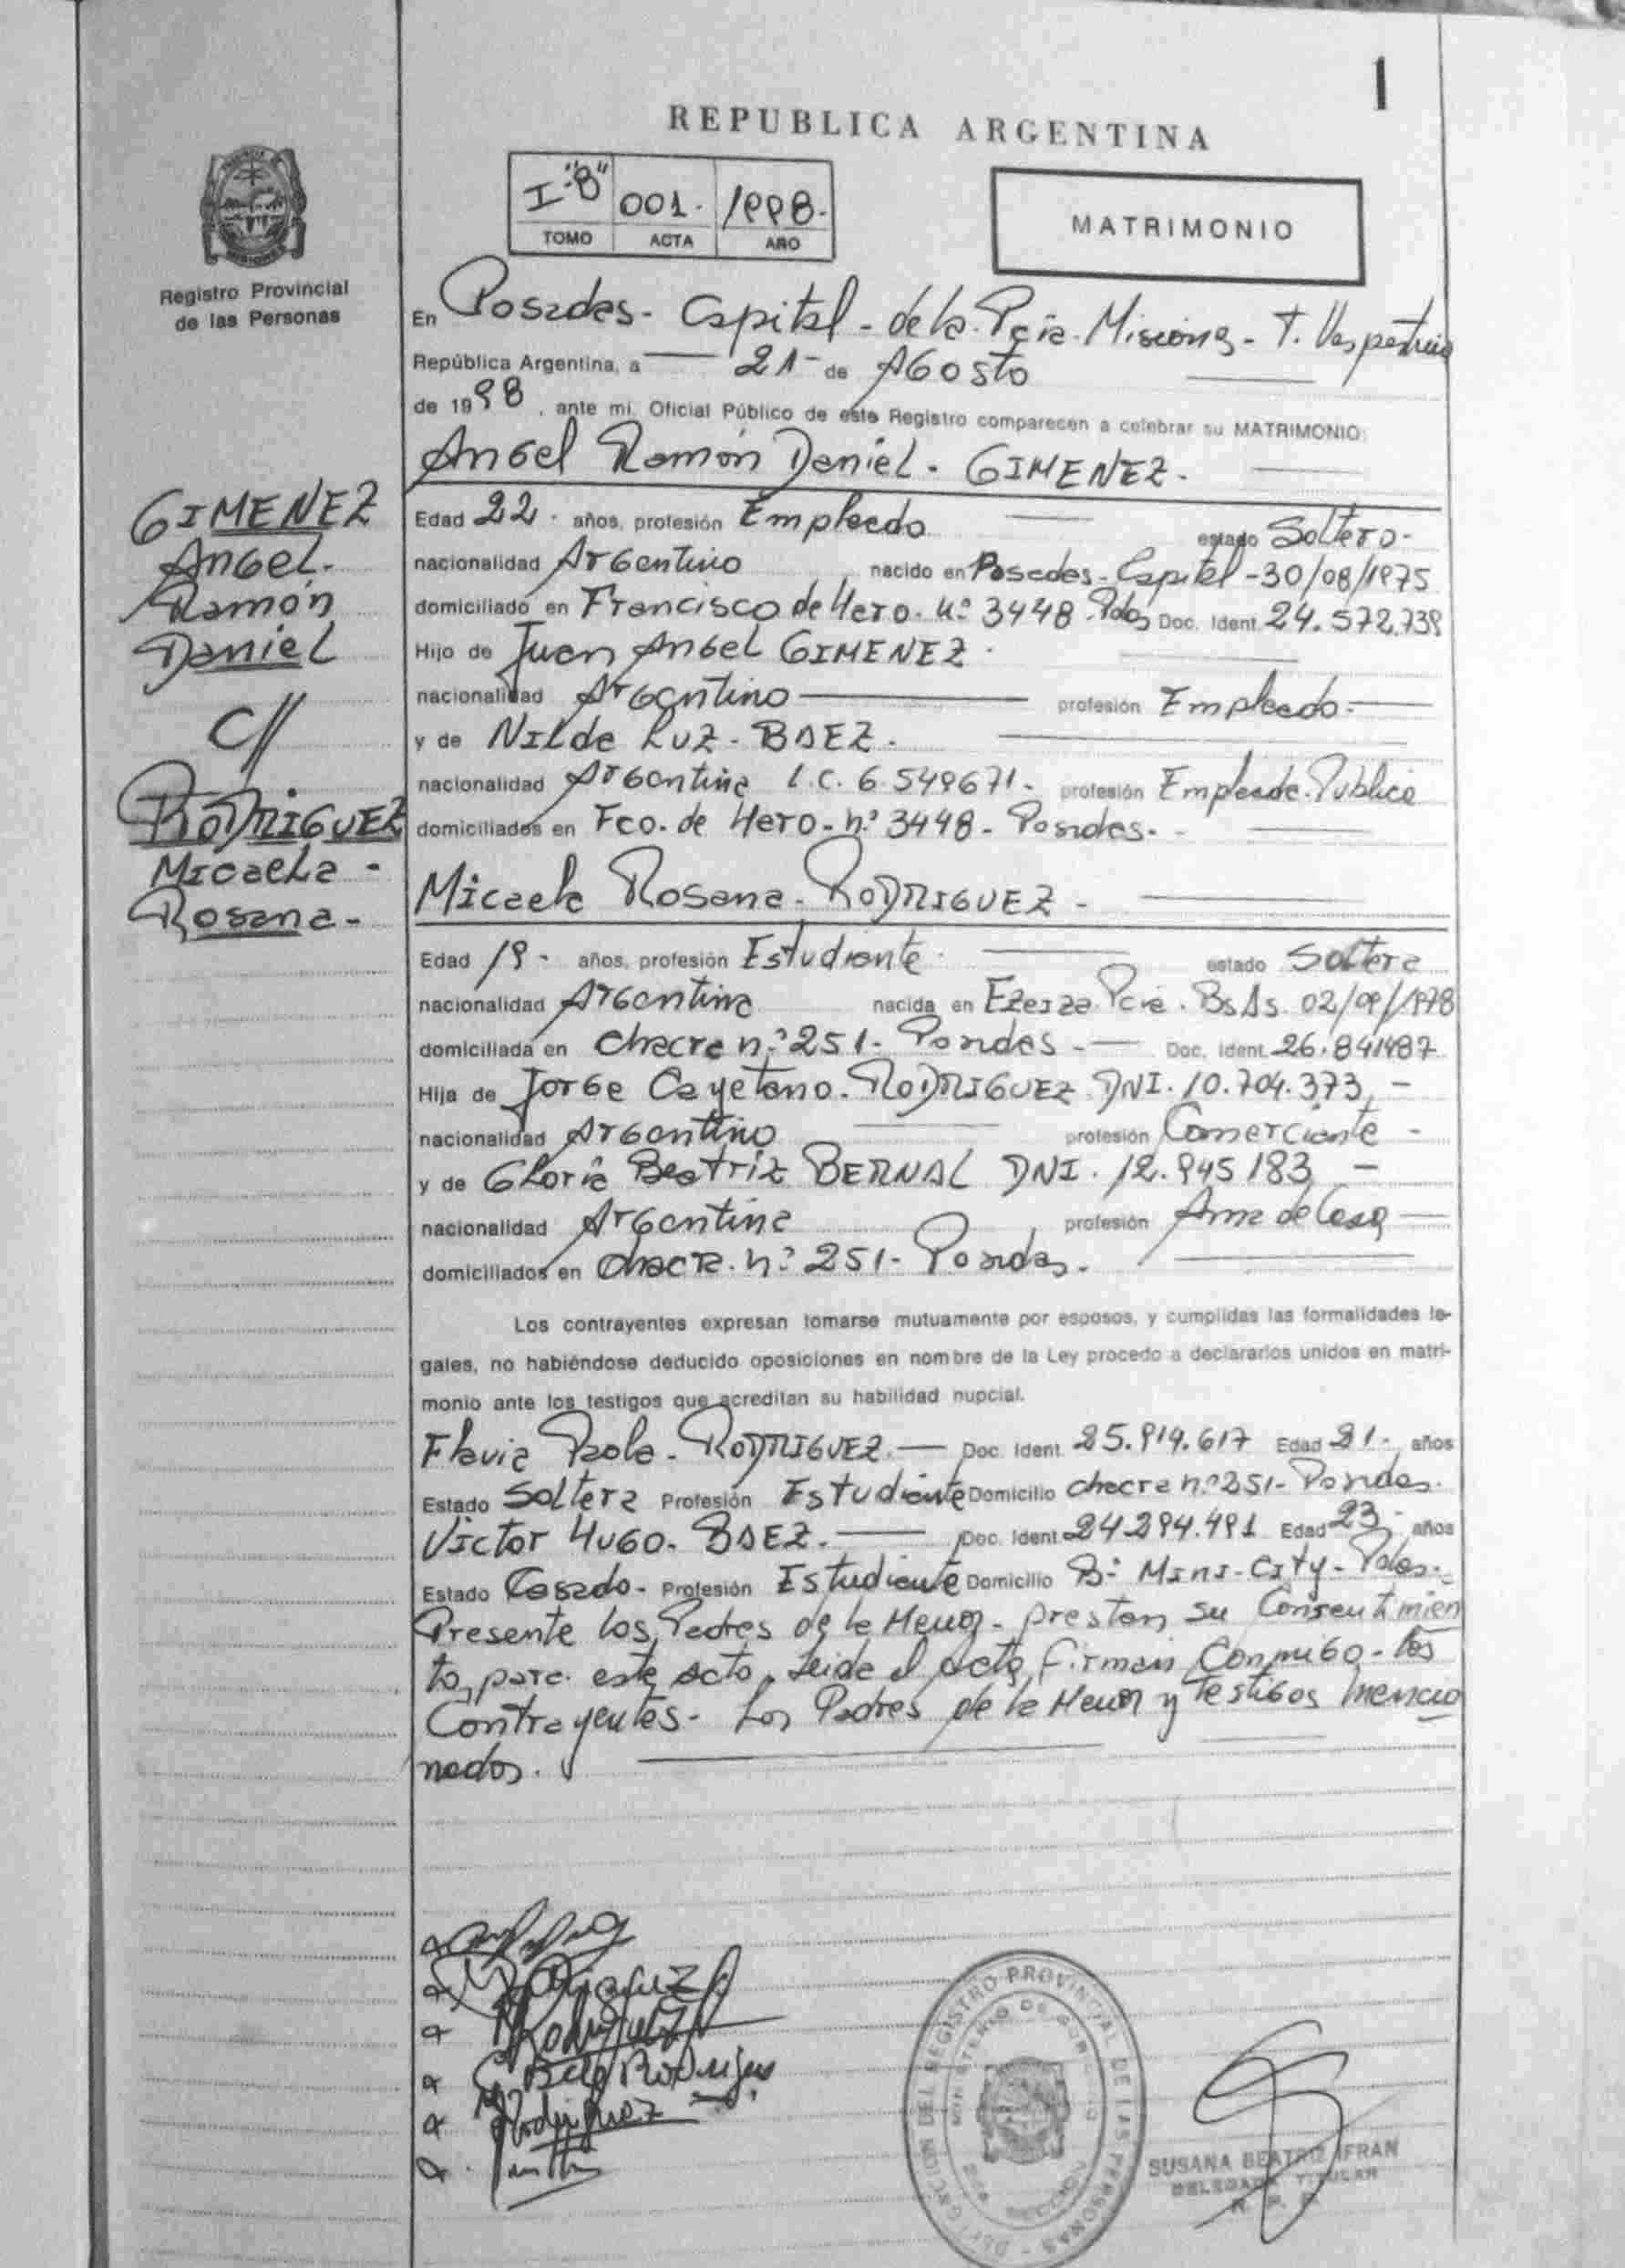 1
REPUBLICA ARGENTINA
I-"B" 001. 1998.
TOMO ACTA AÑO
MATRIMONIO
Registro Provincial
de las Personas
En Posadas - Capital - de la Pcia. Misiones - T. Vespertino
República Argentina, a 21 - de AGosto
de 1998, ante mi, Oficial Público de este Registro comparecen a celebrar su MATRIMONIO:
Angel Ramón Daniel - GIMENEZ -
GIMENEZ
Angel -
Ramón
Daniel
C//
RODRIGUEZ
Micaela -
Rosana -
Edad 22 - años, profesión Empleado estado Soltero -
nacionalidad Argentino nacido en Posadas - Capital - 30/08/1975
domiciliado en Francisco de Hero - nº 3448 - Pdas Doc. Ident. 24.572.739
Hijo de Juan Angel GIMENEZ -
nacionalidad Argentino profesión Empleado -
y de Nilde Luz - BAEZ -
nacionalidad Argentina L.C. 6.549671 - profesión Empleada Pública
domiciliados en Fco. de Hero - nº 3448 - Posadas -
Micaela Rosana - RODRIGUEZ -
Edad 19 - años, profesión Estudiante - estado Soltera
nacionalidad Argentina nacida en Ezeiza Pcia. Bs As. 02/09/1978
domiciliada en Chacra nº 251 - Posadas - Doc. Ident. 26.841487
Hija de Jorge Cayetano - RODRIGUEZ DNI. 10.704.373 -
nacionalidad Argentino profesión Comerciante -
y de Gloria Beatriz BERNAL DNI. 12.945183 -
nacionalidad Argentina profesión Ama de Casa
domiciliados en Chacra nº 251 - Posadas -
Los contrayentes expresan tomarse mutuamente por esposos, y cumplidas las formalidades le-
gales, no habiéndose deducido oposiciones en nombre de la Ley procedo a declararlos unidos en matri-
monio ante los testigos que acreditan su habilidad nupcial.
Flavia Paola - RODRIGUEZ - Doc. Ident. 25.914.617 Edad 21 - años
Estado Soltera Profesión Estudiante Domicilio Chacra nº 251 - Posadas -
Victor Hugo - BAEZ - Doc. Ident. 24.294.491 Edad 23 - años
Estado Casado - Profesión Estudiante Domicilio Bº Mini-City - Pdas -
Presente los Padres de la Menor - prestan su Consentimien
to, para este acto. Leida el acta, firman Conmigo - los
Contrayentes - Los Padres de la Menor y Testigos mencio
nados.
Rodriguez
Rodriguez
Rodriguez
DELEGACION DEL REGISTRO PROVINCIAL DE LAS PERSONAS
MINISTERIO DE GOBIERNO
SUSANA BEATRIZ IFRAN
DELEGADA TITULAR
R. P. P.